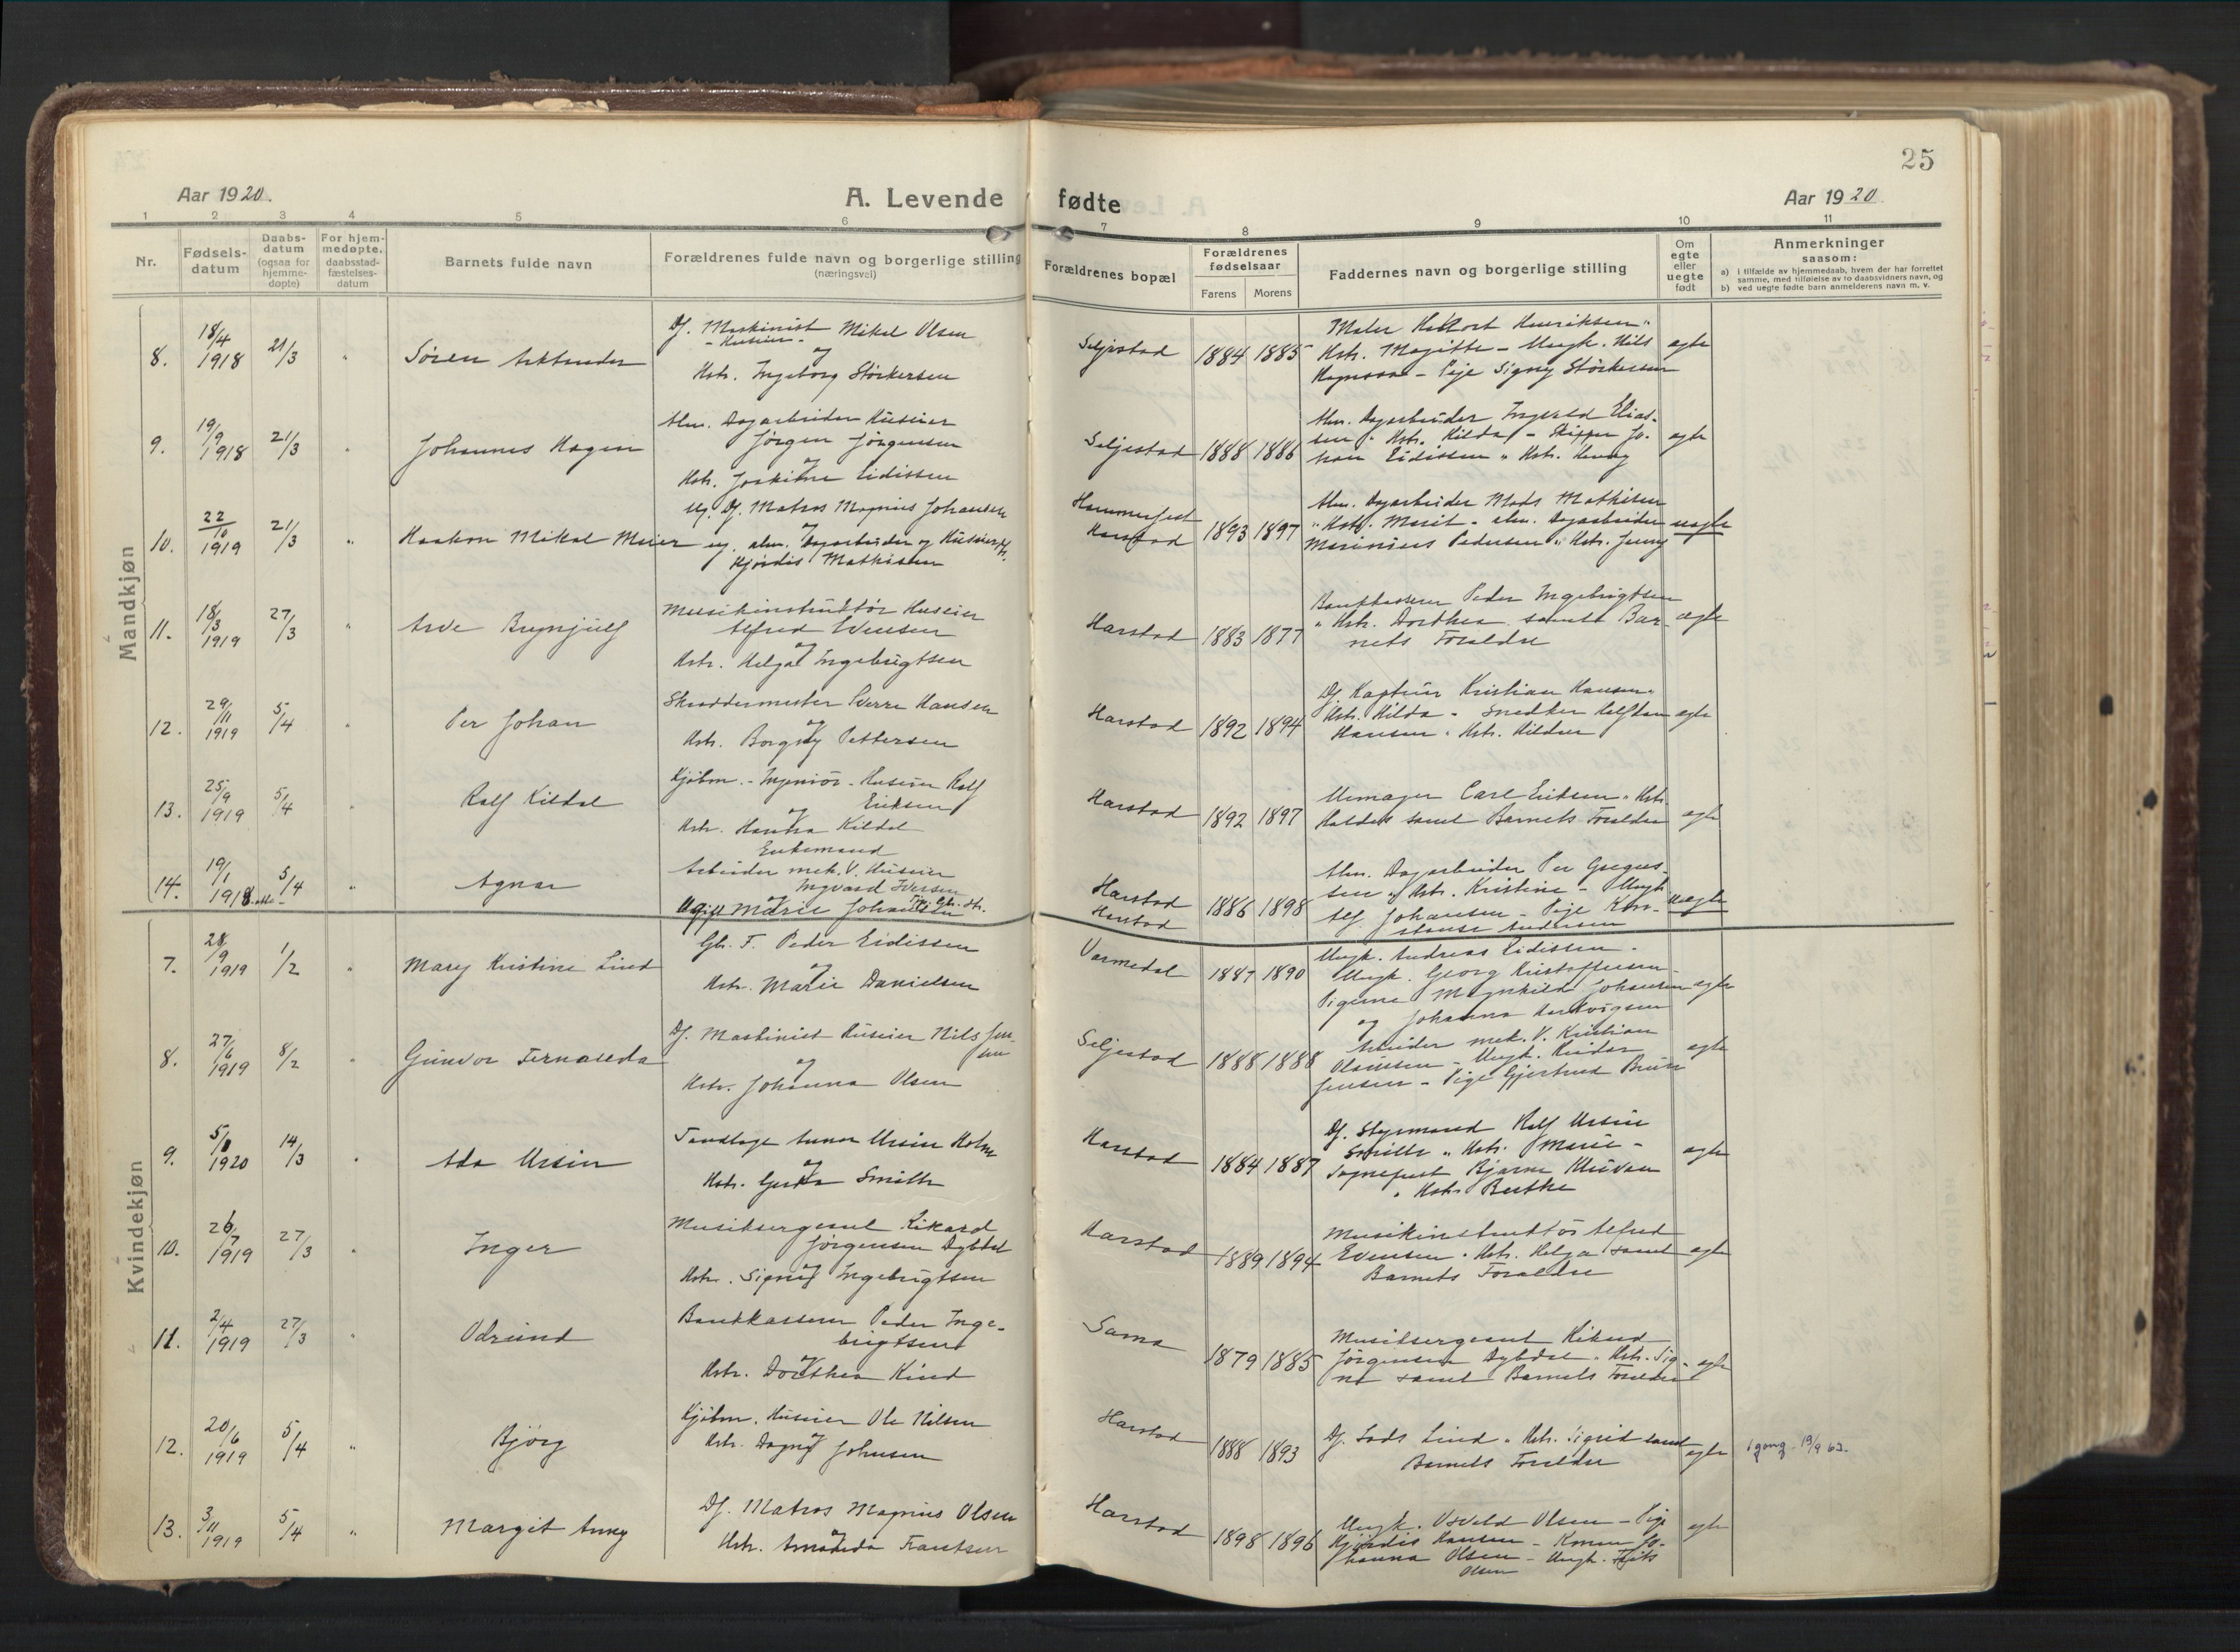 25
Aar 1920.
A. Levende
fødte
Aar 1920.
1 2 3 4 5 6 7 8 9 10 11
Nr.
Fødsels-
datum
Daabs-
datum
(ogsaa for
hjemme-
døpte)
For hjem-
medøpte,
daabsstad-
fæstelses-
datum
Barnets fulde navn
Forældrenes fulde navn og borgerlige stilling
(næringsvei)
Forældrenes bopæl
Forældrenes
fødselsaar
Farens Morens
Faddernes navn og borgerlige stilling
Om
egte
eller
uegte
født
Anmerkninger
saasom:
a) i tilfælde av hjemmedaab, hvem der har forrettet
samme, med tilføielse av to daabsvidners navn, og
b) ved uegte fødte barn anmelderens navn m. v.
Mandkjøn
8.
18/4
1918
21/3
"
Søren
Df. Maskinist Mikal Olsen
- Huseier -
og
Hstr. Ingeborg Störkersen
Seljestad
1884 1885
Maler Henriksen "
Hstr. Magitta - Ungk. Nils
- Pige Signy Störkersen
egte
9.
19/9
1918
21/3
"
Johannes Hagen
Alm. Dagarbeider Huseier
Jörgen Jörgensen
og
Hstr. Eidissen
Seljestad
1888 1886
Alm. Dagarbeider Ingvald Elias-
sen " Hstr. Hilda - Skipper Jo-
han Eidissen " Hstr.
egte
10.
22/10
1919
21/3
"
Haakon Mikal Meier
Ug. Df. Matros Magnus Johansen
og
ug. alm. Dagarbeider og Huseier
Hjördis Mathisen
Hammerfest
Harstad
1893 1897
Alm. Dagarbeider Mads Mathisen
" Hstr. Marit - alm. Dagarbeider
Marinius Pedersen " Hstr. Jenny
uegte
11.
18/3
1919
27/3
"
Arve Brynjulf
Musikinstruktör Huseier
Alfred Evensen
og
Hstr. Helga Ingebrigtsen
Harstad
1883 1877
Bankkasserer Peder Ingebrigtsen
" Hstr. Dorthea samt Bar-
nets Foraldre
egte
12.
29/11
1919
5/4
"
Per Johan
Skræddermester Sverre Hansen
og
Hstr. Borgny Pettersen
Harstad
1892 1894
Df. Kaptein Kristian Hansen "
Hstr. Hilda - Snedker Halfdan
Hansen " Hstr. Hildur
egte
13.
25/9
1919
5/4
"
Ralf Kildal
Kjöbm. - Ingeniör - Huseier Ralf
Eriksen
og
Hstr. Hanna Kildal
Harstad
1892 1897
Urmager Carl Eriksen " Hstr.
samt Barnets Foraldre
egte
14.
19/1
1918
5/4
"
Agnar
Enkemand
Arbeider mek. V. Huseier
Ingvard Iversen
og
Ugift Marie Johansen
Harstad
Harstad
1886 1898
Alm. Dagarbeider Per Gregus-
sen " Hstr. Kristine - Ungk.
Alf Johansen - Pige Kon-
stanse Andersen
uegte
Kvindekjøn
7.
28/9
1919
1/2
"
Mary Kristine Lind
Gb. F. Peder Eidissen
og
Hstr. Marie Danielsen
Varmedal
1887 1890
Ungk. Andreas Eidissen -
Ungk. Georg Kristoffersen -
Pigerne Magnhild Johansen
og Johanna Hartvigsen
egte
8.
27/6
1919
8/2
"
Gunvor Fernanda
Df. Maskinist Huseier Nils Jen-
sen
og
Hstr. Johanna Olsen
Seljestad
1888 1888
Arbeider mek. V. Kristian
Olaussen - Ungk. Reidar
Jensen - Pige Gjertrud Bruun
egte
9.
5/1
1920
14/3
"
Ada Ursin
Tandlæge Gunnar Ursin Holm
og
Hstr. Gerda Smith
Harstad
1884 1887
Df. Styrmand Ralf Ursin
Smith " Hstr. Marie -
Sogneprest Bjarne
" Hstr. Berthe
egte
10.
26/7
1919
27/3
"
Inger
Musiksergeant Rikard
Jörgensen Dybdal
og
Hstr. Signe Ingebrigtsen
Harstad
1889 1894
Musikinstruktör Alfred
Evensen " Hstr. Helga samt
Barnets Foraldre
egte
11.
2/4
1919
27/3
"
Odrund
Bankkasserer Peder Inge-
brigtsen
og
Hstr. Dorthea Kind
Sama
1879 1885
Musiksergeant Rikard
Jörgensen Dybdal " Hstr. Sig-
ne samt Barnets Foraldre
egte
12.
20/6
1919
5/4
"
Björg
Kjöbm. Huseier Ole Nilsen
og
Hstr. Dagny Johnsen
Harstad
1888 1893
Df. Lods Lind " Hstr. Sigrid samt
Barnets Foraldre
egte
1 gang - 19/9 63.
13.
3/11
1919
5/4
"
Margit Anny
Df. Matros Magnus Olsen
og
Hstr. Amanda Frantsen
Harstad
1898 1896
Ungk. Osvald Olsen - Pige
Hjördis Hansen - Konen Jo-
hanna Olsen - Ungk.
Olsen
egte